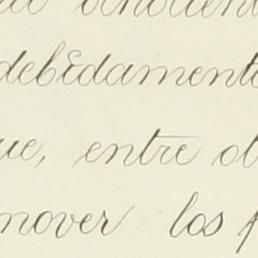 debidamente
ue, entre ot
mover los p